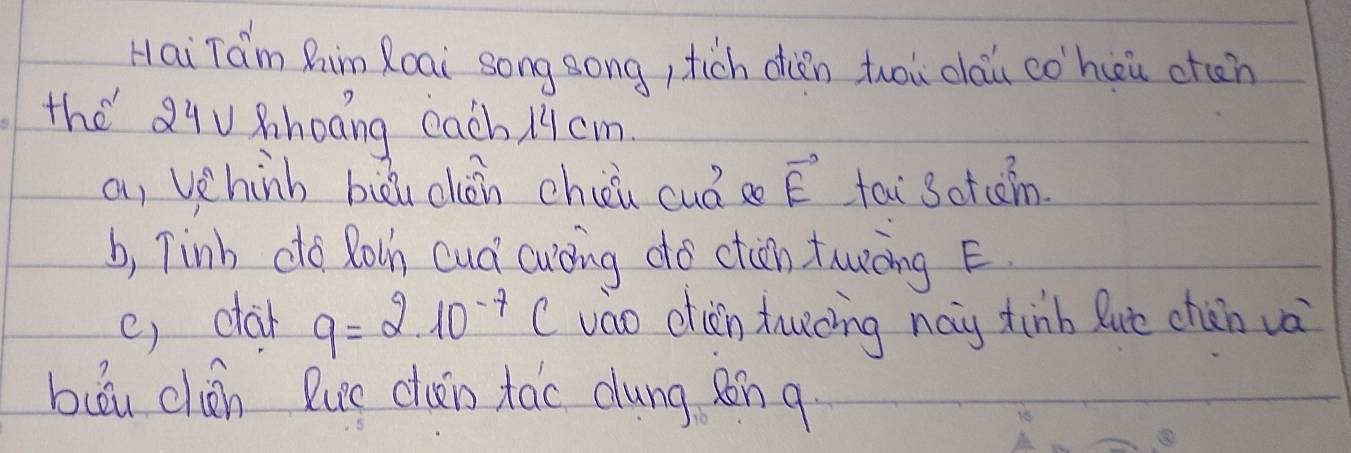 Hai Tấm kim loại song song, tích điện trái dấu có hiệu điện
thế 24V khoảng cách 14 cm.
a, Vẽ hình biểu diễn chiều của E⃗ tại 3 điểm.
b, Tính độ lớn của cường độ điện trường E.
c, đặt q = 2.10⁻⁷ C vào điện trường này tính lực điện và
biểu diễn lực điện tác dụng lên q.